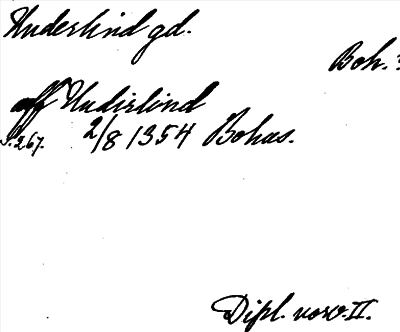 Underlind gd.
Boh.
aff Undirlind
S. 267. 2/8 1354 Bohus.
Dipl. norv. II.